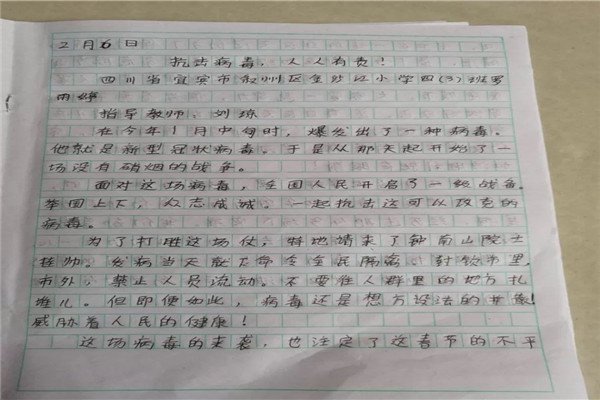 2月6日
抗击病毒，人人有责！
四川省宜宾市叙州区金沙江小学四(3)班罗
雨婷
指导教师：刘琼
在今年1月中旬时，爆发出了一种病毒。
他就是新型冠状病毒。于是从那天起开始了一
场没有硝烟的战争。
面对这场病毒，全国人民开启了一级战备。
举国上下，众志成城，一起抗击这可以攻克的
病毒。
为了打胜这场仗，特地请来了钟南山院士
挂帅。发病当天就下令全民隔离，封锁
市外，禁止人员流动。不要往人群里的地方扎
堆儿。但即便如此，病毒还是想方设法的
威胁着人民的健康！
这场病毒的来袭，也注定了这春节的不平